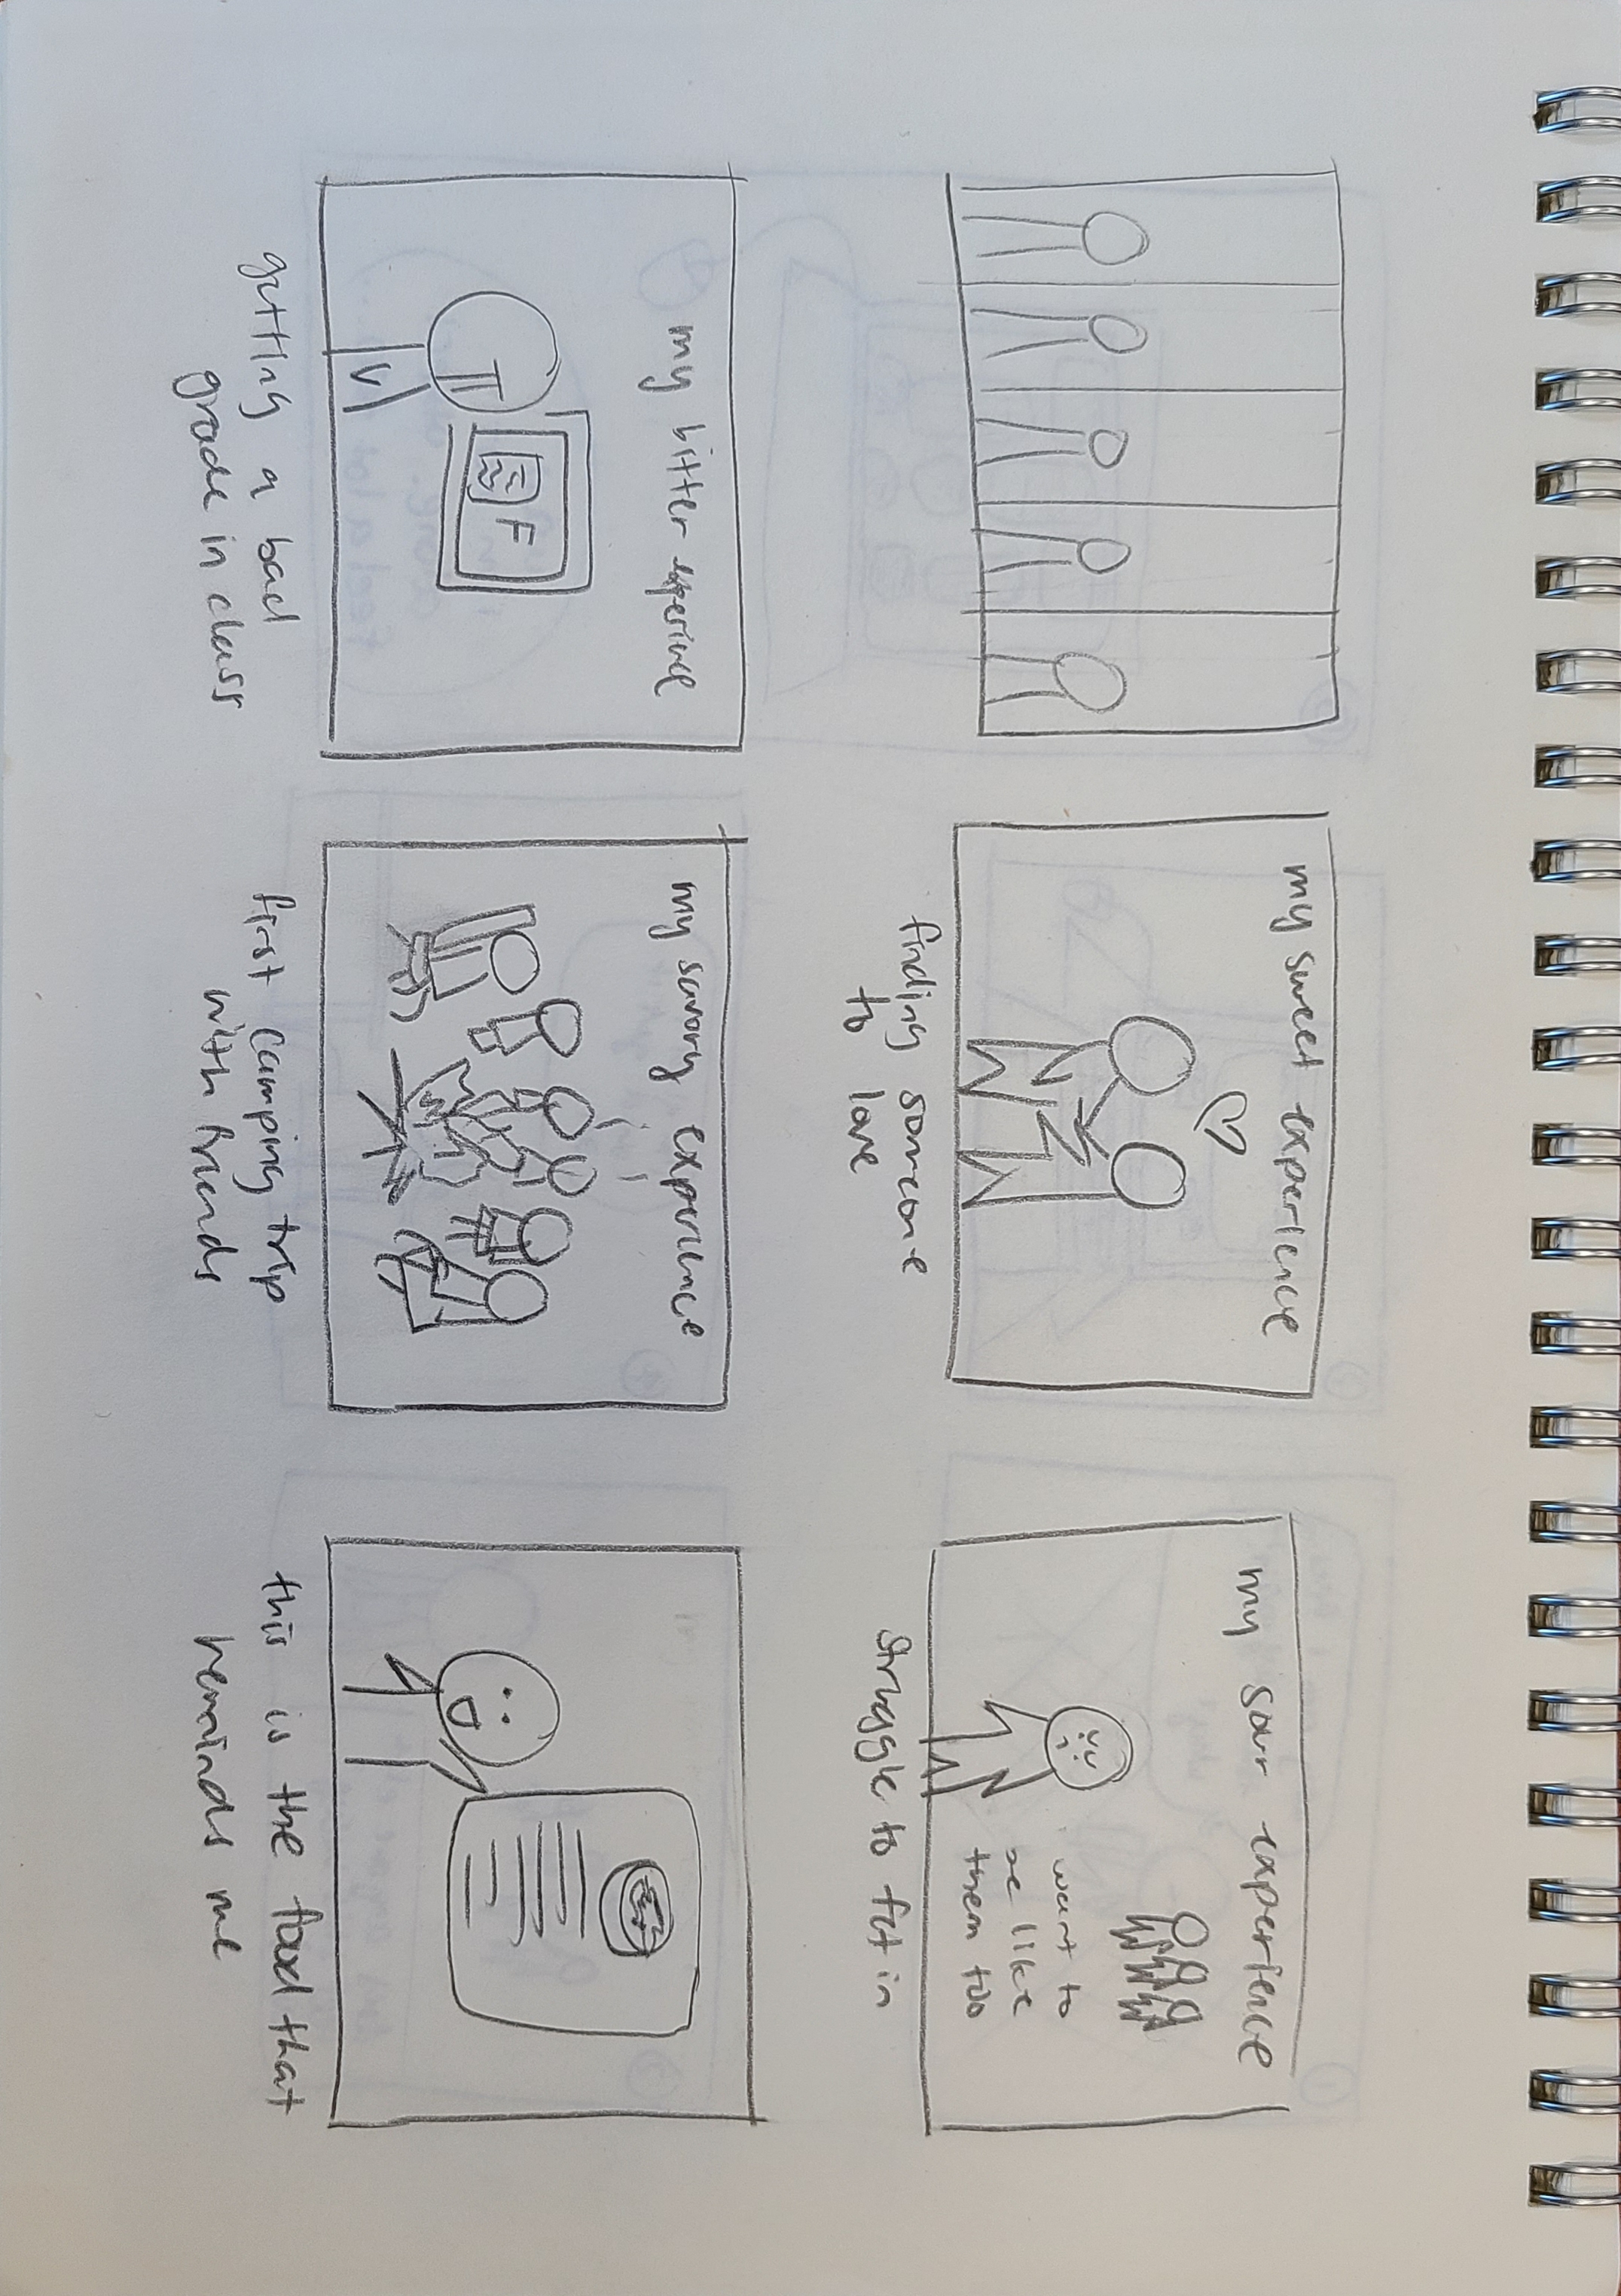 my sweet experience
finding someone
to love
my sour experience
want to
be like
them too
struggle to fit in
my bitter experience
F
getting a bad
grade in class
my savory experience
first camping trip
with friends
this is the food that
reminds me